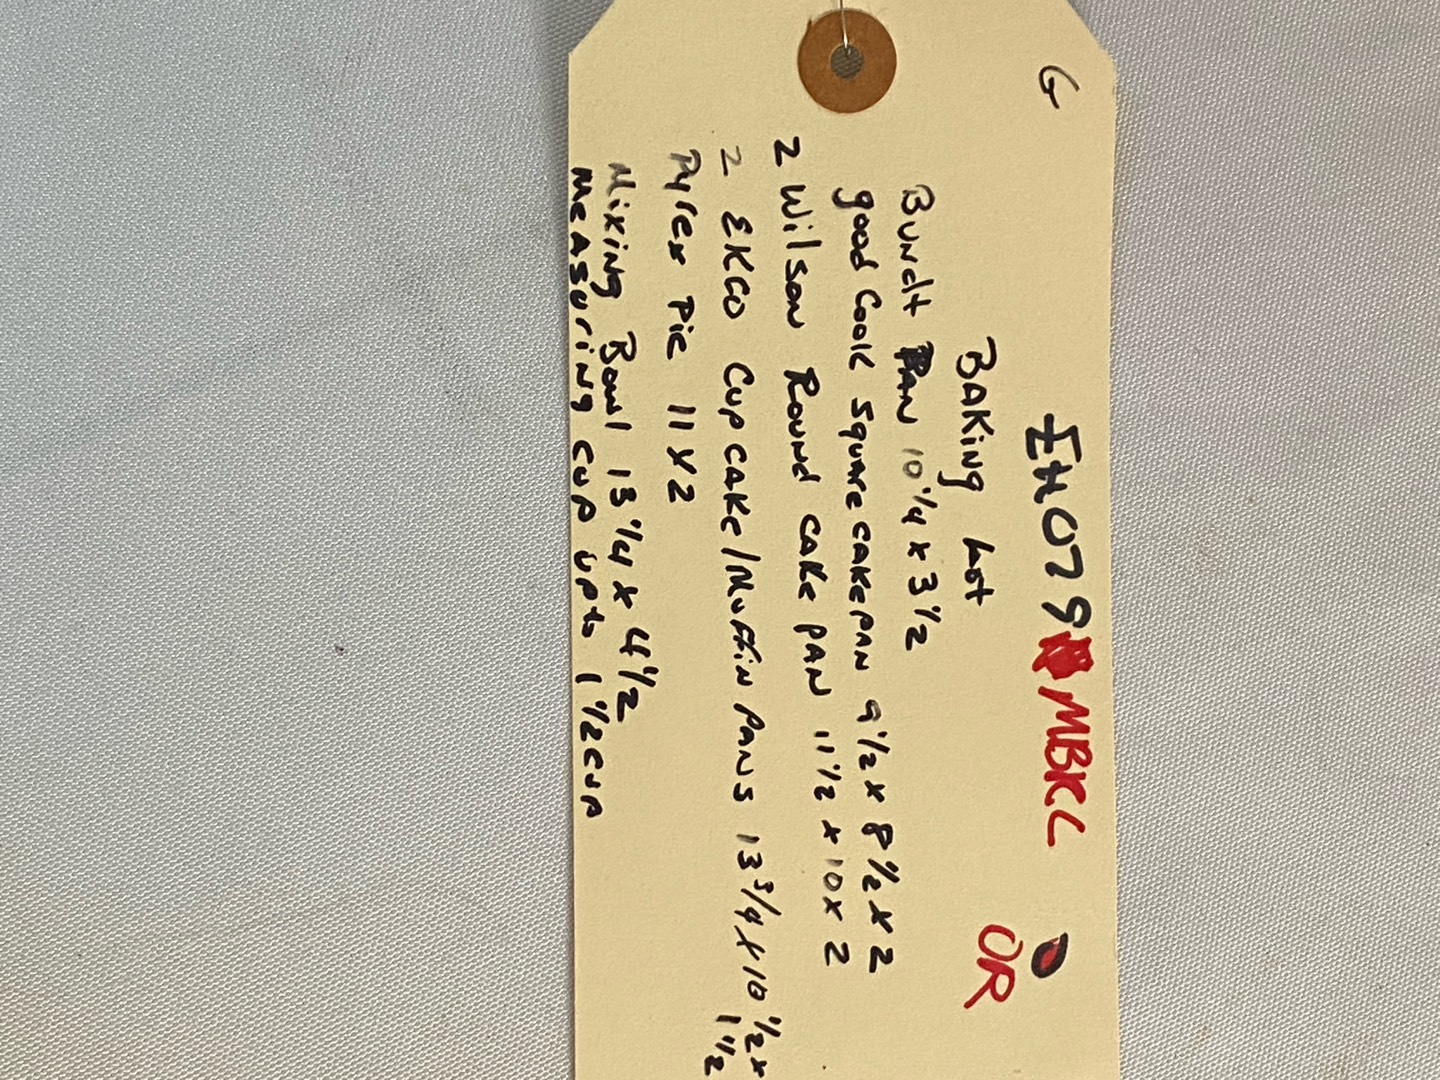 G
EH079 MBKC
OR
BAKing Lot
Bundt PAN 10 1/4 x 3 1/2
good Cook square cake pan 9 1/2 x 8 1/2 x 2
2 Wilson Round cake pan 11 1/2 x 10 x 2
2 EKCO Cupcake/Muffin pans 13 3/4 x 10 1/2 x
1 1/2
Pyrex Pie 11 x 2
Mixing Bowl 13 1/4 x 4 1/2
Measuring cup up to 1 1/2 cup